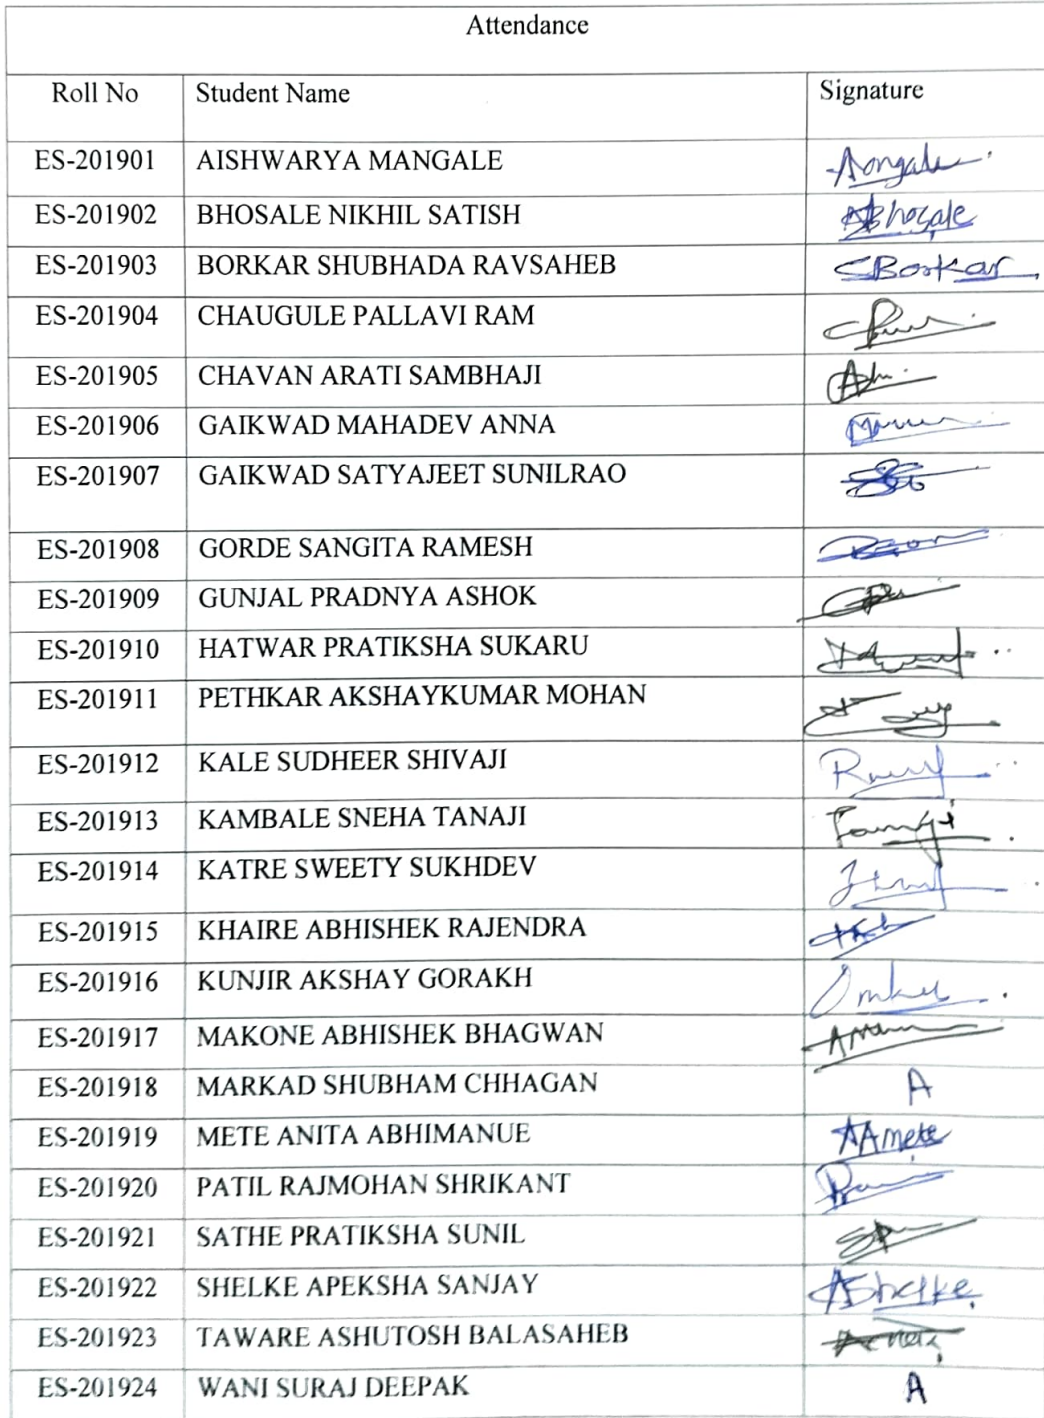 Attendance
Roll No Student Name Signature
ES-201901 AISHWARYA MANGALE
ES-201902 BHOSALE NIKHIL SATISH Bhosale
ES-201903 BORKAR SHUBHADA RAVSAHEB SBorkar
ES-201904 CHAUGULE PALLAVI RAM
ES-201905 CHAVAN ARATI SAMBHAJI
ES-201906 GAIKWAD MAHADEV ANNA
ES-201907 GAIKWAD SATYAJEET SUNILRAO
ES-201908 GORDE SANGITA RAMESH
ES-201909 GUNJAL PRADNYA ASHOK
ES-201910 HATWAR PRATIKSHA SUKARU
ES-201911 PETHKAR AKSHAYKUMAR MOHAN
ES-201912 KALE SUDHEER SHIVAJI
ES-201913 KAMBALE SNEHA TANAJI
ES-201914 KATRE SWEETY SUKHDEV
ES-201915 KHAIRE ABHISHEK RAJENDRA
ES-201916 KUNJIR AKSHAY GORAKH
ES-201917 MAKONE ABHISHEK BHAGWAN
ES-201918 MARKAD SHUBHAM CHHAGAN A
ES-201919 METE ANITA ABHIMANUE AAmete
ES-201920 PATIL RAJMOHAN SHRIKANT
ES-201921 SATHE PRATIKSHA SUNIL
ES-201922 SHELKE APEKSHA SANJAY AShelke
ES-201923 TAWARE ASHUTOSH BALASAHEB
ES-201924 WANI SURAJ DEEPAK A